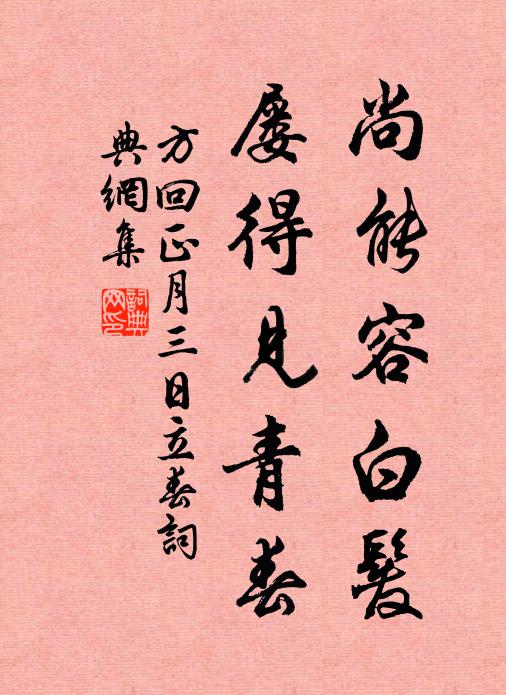 尚能容白髮
屡得見青春
方回正月三日立春詞
典網集
詞典网印